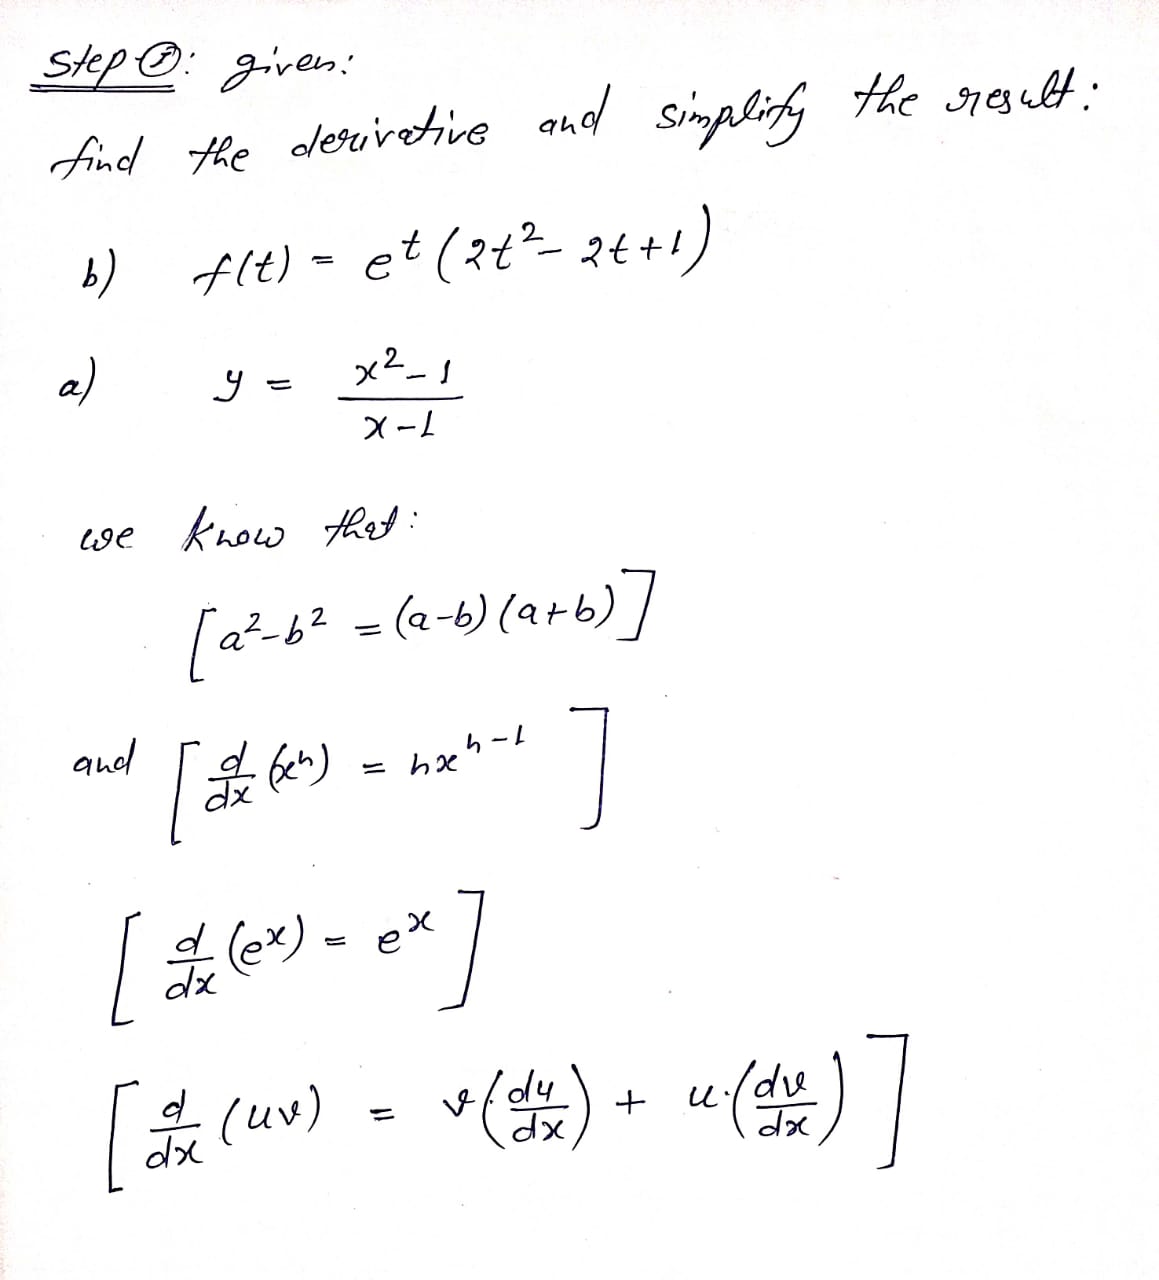 Step ①: given:
find the derivative and simplify the result:
b) f(t) = e^t (2t^2 - 2t + 1)
a) y = (x^2 - 1)/(x - 1)
we know that:
[a^2 - b^2 = (a-b) (a+b)]
and [d/dx (x^n) = nx^(n-1)]
[d/dx (e^x) = e^x]
[d/dx (uv) = v(du/dx) + u·(dv/dx)]